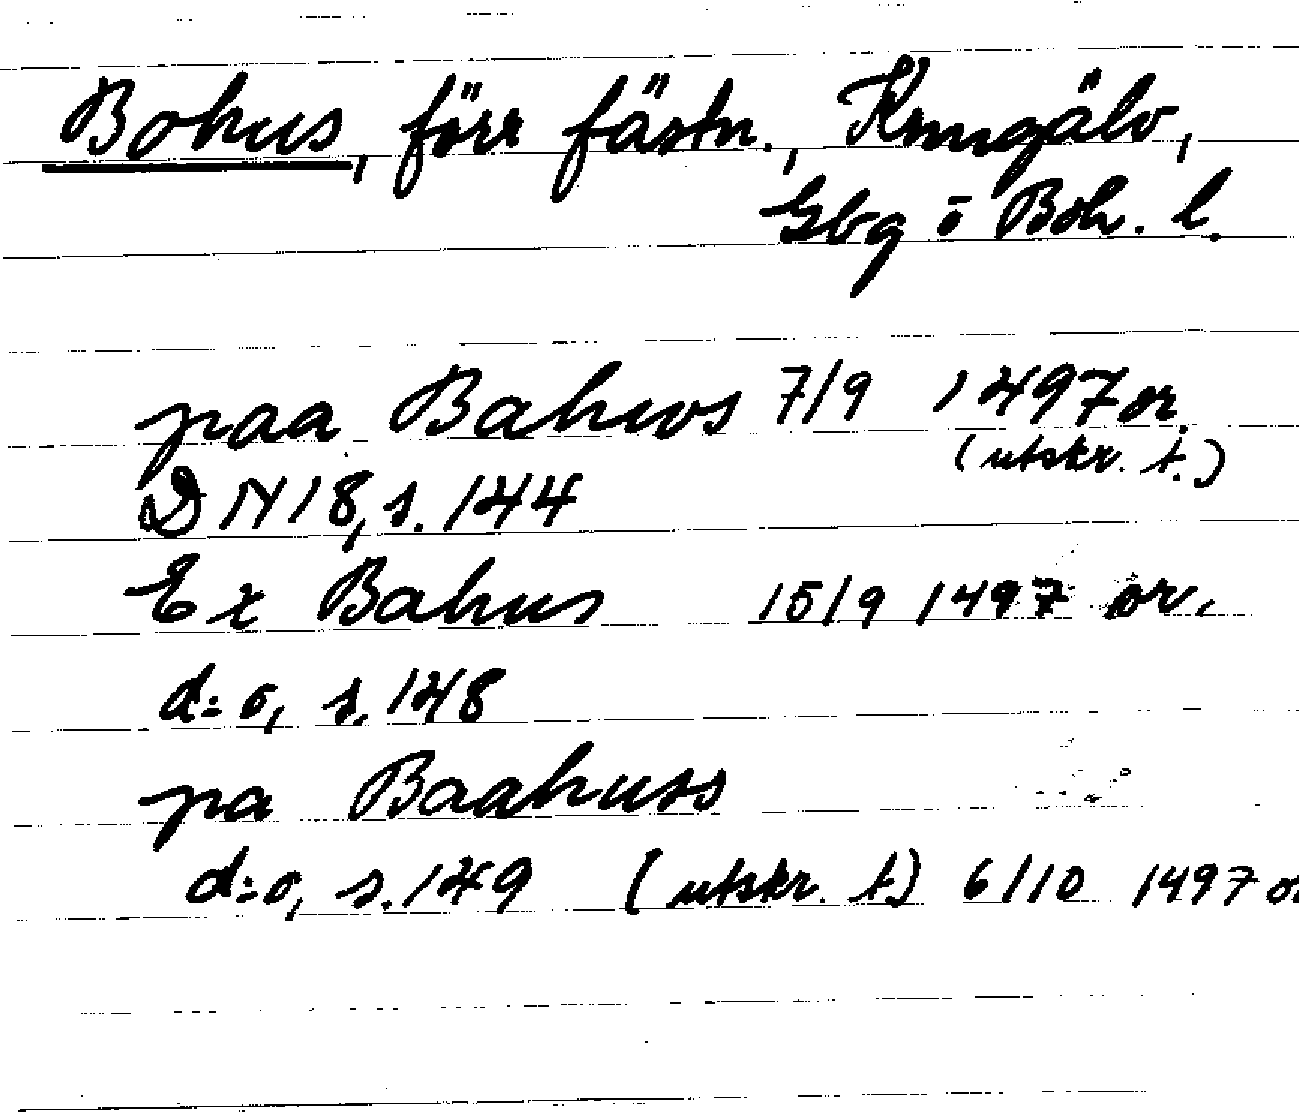 Bohus, förr fästn., Kungälv,
Gbg o Boh. l.
paa Bahws 7/9 1497 or.
(utskr. t.)
DN 18, s. 144
Ex Bahus 15/9 1497 or.
d:o, s. 148
pa Baahuss
d:o, s. 149 (utskr. t.) 6/10 1497 or